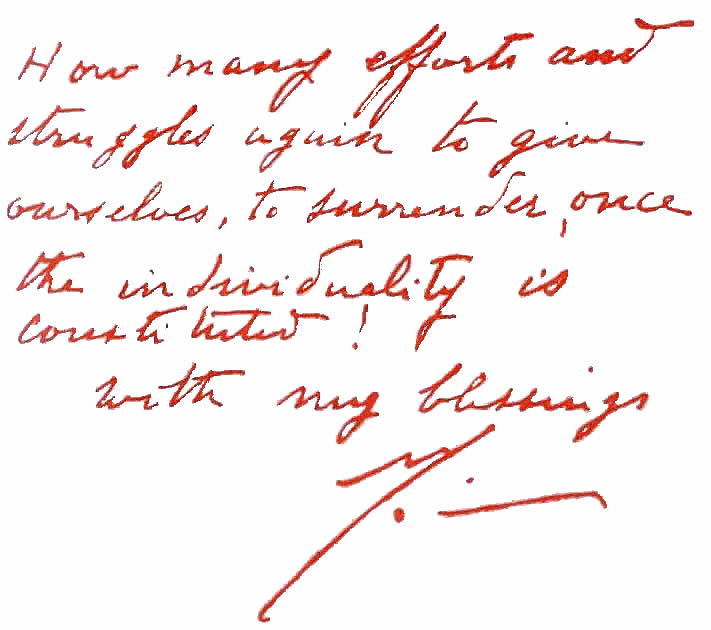 How many efforts and
struggles again to give
ourselves, to surrender, once
the individuality is
constituted!
with my blessings